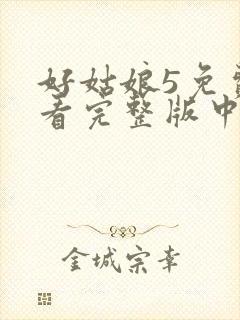 好姑娘5免
看完整版中
金城宗幸